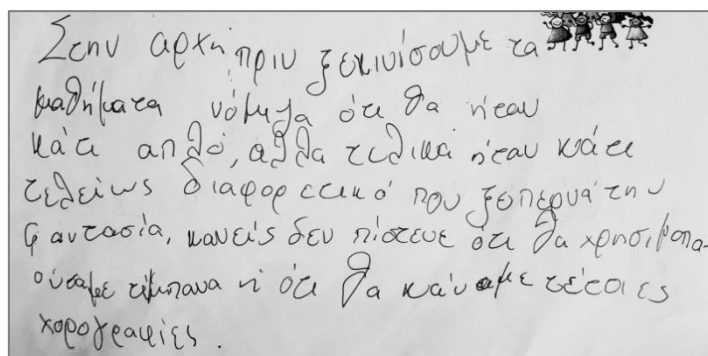 Στην αρχή πριν ξεκινίσουμε τα
μαθήματα νόμιζα ότι θα ήταν
κάτι απλό, αλλα τελικά ήταν κάτι
τελείως διαφορετικό που ξεπερνά την
φαντασία, κανείς δεν πίστευε ότι θα χρησιμοπα-
ούσαμε τύμπανα ή ότι θα κάναμε τέτοιες
χορογραφίες.